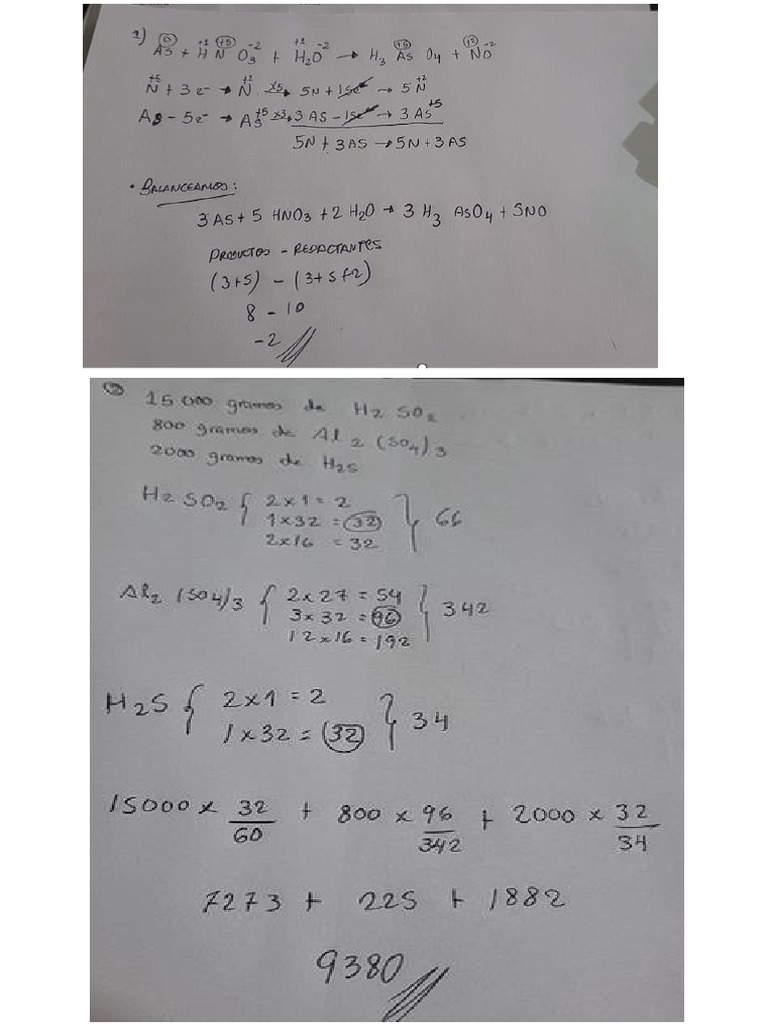 1) As⁰ + H⁺¹ N⁺⁵ O₃⁻² + H₂⁺¹O⁻² → H₃ As⁺⁵ O₄ + N⁺²O⁻²
N⁺⁵ + 3e⁻ → N⁺² ×5 5N + 15e⁻ → 5N⁺²
As - 5e⁻ → As⁺⁵ ×3 3AS - 15e⁻ → 3AS⁺⁵
5N + 3AS → 5N + 3AS
• BALANCEAMOS:
3AS + 5 HNO₃ + 2 H₂O → 3 H₃ AsO₄ + 5NO
PRODUCTOS - REDACTANTES
(3+5) - (3+5+2)
8 - 10
-2
15 000 gramos de H₂ SO₂
800 gramos de Al₂ (SO₄)₃
2000 gramos de H₂S
H₂ SO₂ { 2x1 = 2
1x32 = 32 } 66
2x16 = 32
Al₂ (SO₄)₃ { 2x27 = 54
3x32 = 96 } 342
12x16 = 192
H₂S { 2x1 = 2
1x32 = 32 } 34
15000 x 32/60 + 800 x 96/342 + 2000 x 32/34
7273 + 225 + 1882
9380